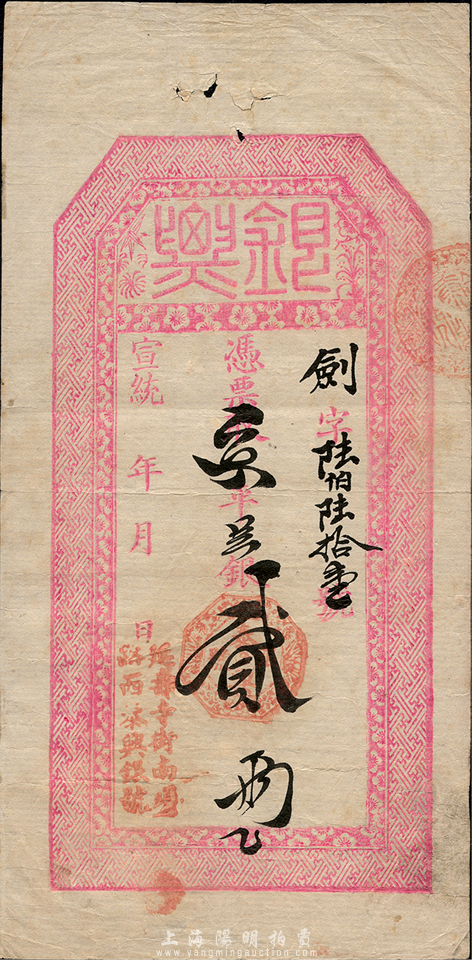 銀興
劍字陸佰陸拾壹號
憑票取京平足銀貳兩
宣統 年 月 日
延壽寺街南頭
路西永興銀號
上海陽明拍賣
www.yangmingauction.com